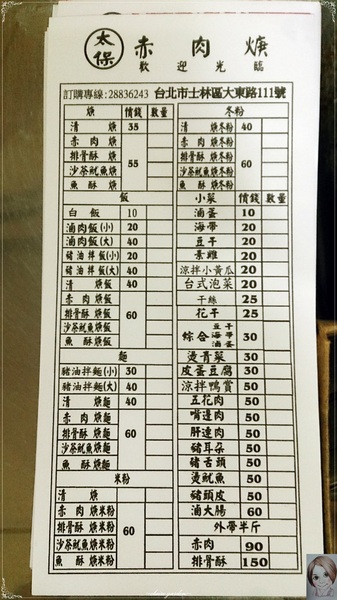 太保 赤肉焿
歡迎光臨
訂購專線:28836243 台北市士林區大東路111號
焿 價錢 數量
清 焿 35
赤肉焿
排骨酥焿 55
沙茶魷魚焿
魚酥焿
飯
白飯 10
滷肉飯(小) 20
滷肉飯(大) 40
豬油拌飯(小) 20
豬油拌飯(大) 40
清 焿飯 40
赤肉焿飯
排骨酥焿飯 60
沙茶魷魚焿飯
魚酥焿飯
麵
豬油拌麵(小) 30
豬油拌麵(大) 40
清 焿麵 40
赤肉焿麵
排骨酥焿麵 60
沙茶魷魚焿麵
魚酥焿麵
米粉
清 焿
赤肉焿米粉
排骨酥焿米粉 60
沙茶魷魚焿米粉
魚酥焿米粉
冬粉
清 焿冬粉 40
赤肉焿冬粉
排骨酥焿冬粉 60
沙茶魷魚焿冬粉
魚酥焿冬粉
小菜 價錢 數量
滷蛋 10
海帶 20
豆干 20
素雞 20
涼拌小黃瓜 20
台式泡菜 20
干絲 25
花干 25
綜合 豆干 海帶 滷蛋 30
燙青菜 30
皮蛋豆腐 30
涼拌鴨賞 50
五花肉 50
嘴邊肉 50
肝連肉 50
豬耳朵 50
豬舌頭 50
燙魷魚 50
豬頭皮 50
滷大腸 60
外帶半斤
赤肉 90
排骨酥 150